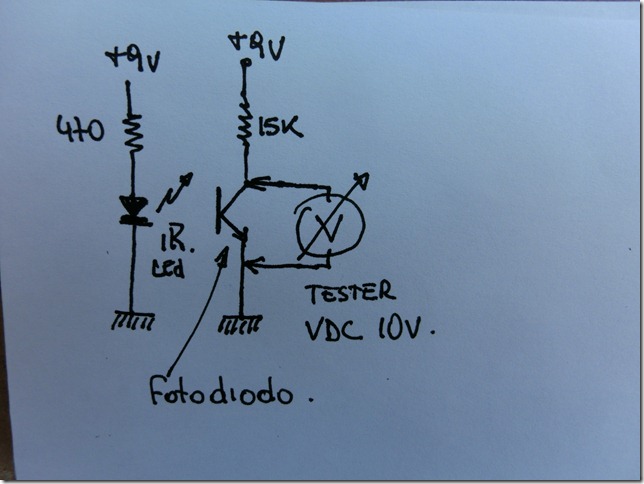 +9V
+9V
470
15K
V
IR.
LED
TESTER
VDC 10V.
Fotodiodo.